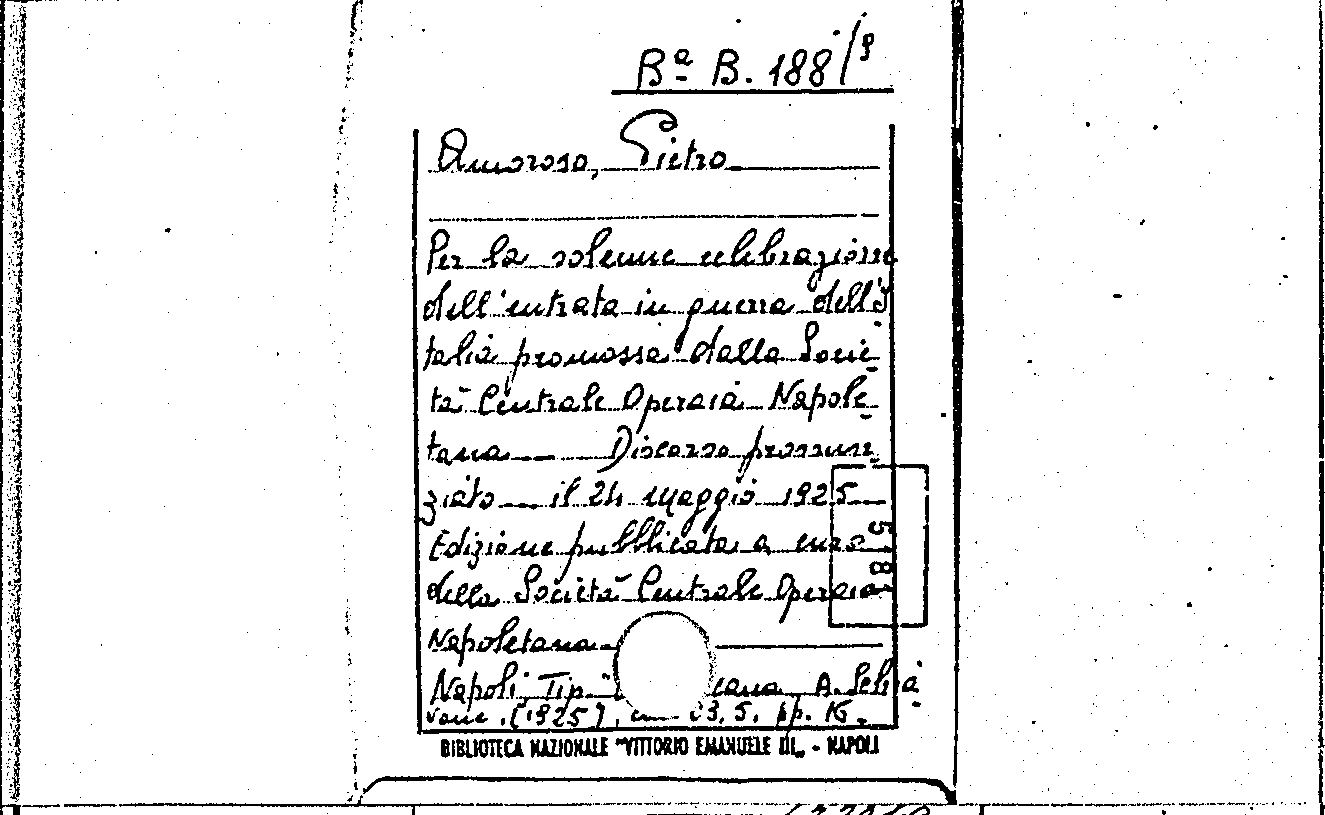 Bª B. 188/9
Amoroso, Pietro
Per la solenne celebrazione
dell'entrata in guerra dell'I
talia promossa dalla Socie-
tà Centrale Operaia Napole-
tana Discorso pronun-
ziato il 24 maggio 1925
Edizione pubblicata a cura
della Società Centrale Operaia
Napoletana
Napoli, Tip. A. Schia-
vone. (1925), 3,5. pp. 16.
518
BIBLIOTECA NAZIONALE "VITTORIO EMANUELE III„ - NAPOLI